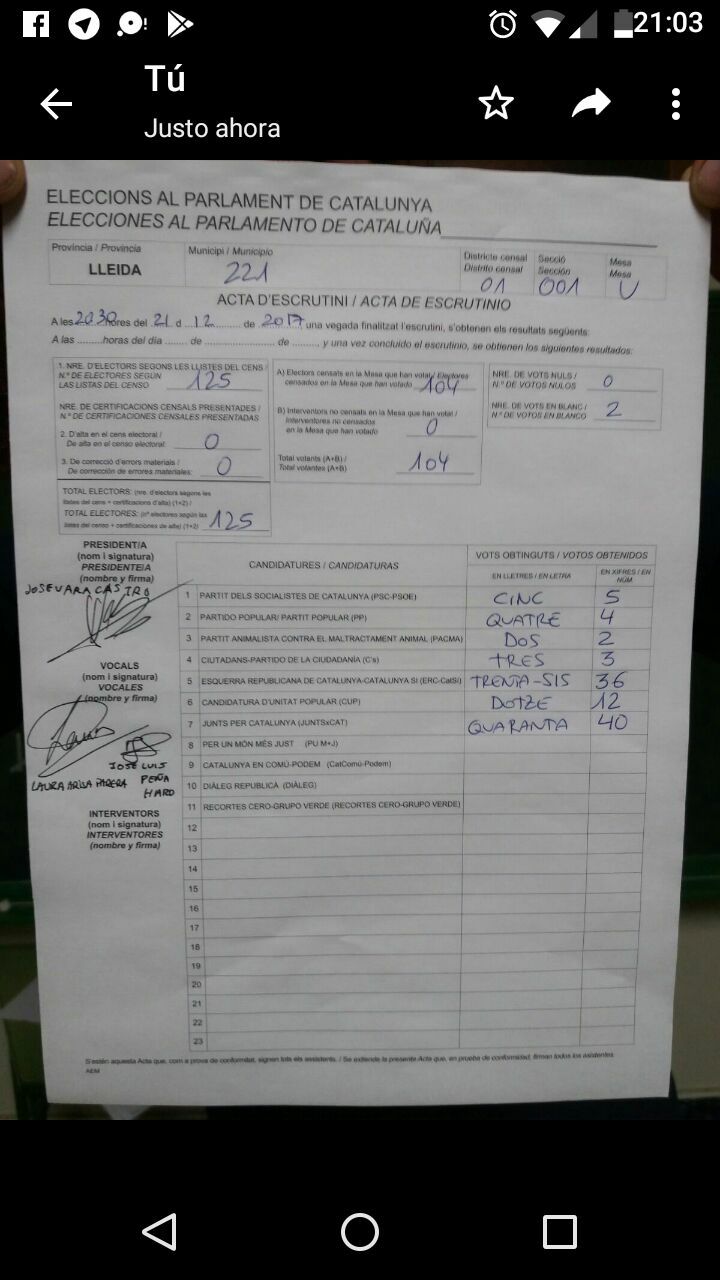 21:03
Tú
Justo ahora
ELECCIONS AL PARLAMENT DE CATALUNYA
ELECCIONES AL PARLAMENTO DE CATALUÑA
Província / Provincia
LLEIDA
Municipi / Municipio
221
Districte censal
Distrito censal
01
Secció
Sección
001
Mesa
Mesa
U
ACTA D'ESCRUTINI / ACTA DE ESCRUTINIO
A les 20.30 hores del 21 d 12 de 2017 una vegada finalitzat l'escrutini, s'obtenen els resultats següents:
A las ......... horas del día ....... de ............... de ........... y una vez concluido el escrutinio, se obtienen los siguientes resultados:
1. NRE. D'ELECTORS SEGONS LES LLISTES DEL CENS /
N.º DE ELECTORES SEGÚN
LAS LISTAS DEL CENSO 125
NRE. DE CERTIFICACIONS CENSALS PRESENTADES /
N.º DE CERTIFICACIONES CENSALES PRESENTADAS
2. D'alta en el cens electoral /
De alta en el censo electoral: 0
3. De correcció d'errors materials /
De corrección de errores materiales: 0
TOTAL ELECTORS: (nre. d'electors segons les
llistes del cens + certificacions d'alta) (1+2) /
TOTAL ELECTORES: (nº electores según las
listas del censo + certificaciones de alta) (1+2) 125
A) Electors censats en la Mesa que han votat / Electores
censados en la Mesa que han votado 104
B) Interventors no censats en la Mesa que han votat /
Interventores no censados
en la Mesa que han votado 0
Total votants (A+B) /
Total votantes (A+B) 104
NRE. DE VOTS NULS /
N.º DE VOTOS NULOS 0
NRE. DE VOTS EN BLANC /
N.º DE VOTOS EN BLANCO 2
PRESIDENT/A
(nom i signatura)
PRESIDENTE/A
(nombre y firma)
JOSE VARA CASTRO
VOCALS
(nom i signatura)
VOCALES
(nombre y firma)
JOSE LUIS
PEÑA
HARO
LAURA PARERA
INTERVENTORS
(nom i signatura)
INTERVENTORES
(nombre y firma)
CANDIDATURES / CANDIDATURAS
VOTS OBTINGUTS / VOTOS OBTENIDOS
EN LLETRES / EN LETRA
EN XIFRES / EN NÚM.
1 PARTIT DELS SOCIALISTES DE CATALUNYA (PSC-PSOE) CINC 5
2 PARTIDO POPULAR/ PARTIT POPULAR (PP) QUATRE 4
3 PARTIT ANIMALISTA CONTRA EL MALTRACTAMENT ANIMAL (PACMA) DOS 2
4 CIUTADANS-PARTIDO DE LA CIUDADANÍA (C's) TRES 3
5 ESQUERRA REPUBLICANA DE CATALUNYA-CATALUNYA SÍ (ERC-CatSí) TRENTA-SIS 36
6 CANDIDATURA D'UNITAT POPULAR (CUP) DOTZE 12
7 JUNTS PER CATALUNYA (JUNTSxCAT) QUARANTA 40
8 PER UN MÓN MÉS JUST (PU M+J)
9 CATALUNYA EN COMÚ-PODEM (CatComú-Podem)
10 DIÀLEG REPUBLICÀ (DIÀLEG)
11 RECORTES CERO-GRUPO VERDE (RECORTES CERO-GRUPO VERDE)
12
13
14
15
16
17
18
19
20
21
22
23
S'estén aquesta Acta que, com a prova de conformitat, signen tots els assistents. / Se extiende la presente Acta que, en prueba de conformidad, firman todos los asistentes
AEM